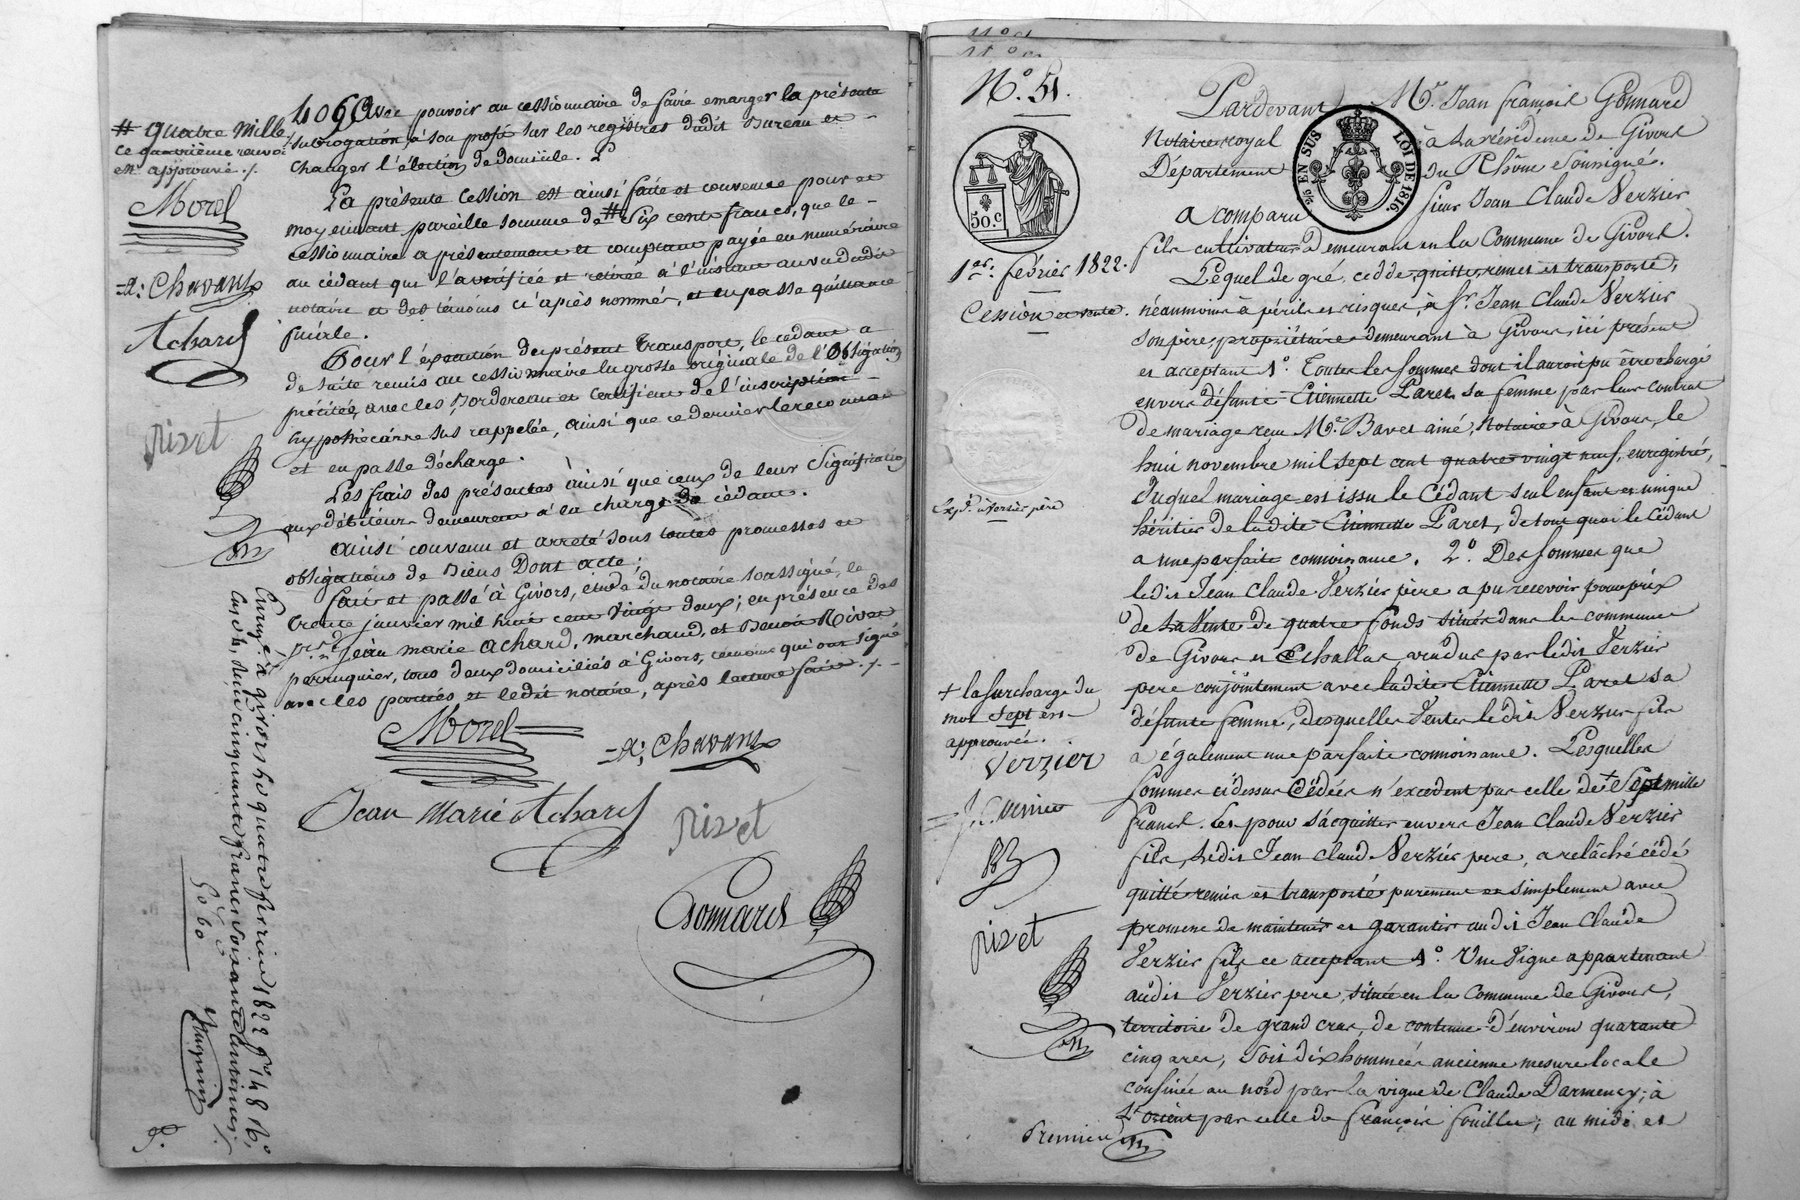 4060 avec pouvoir au cessionnaire de faire emarger la présente
subrogation, à son profit sur les registres dudit Bureau et
changer l'élection de domicile.
La présente Cession est ainsi faite et convenue pour et
moyennant pareille somme de # Six cents francs, que le
cessionnaire a présentement et comptant payée en numéraire
au cédant qui l'a vérifiée et retirée à l'instant au vu dudit
notaire et des témoins ci après nommés, et en passe quittance
Pour l'éxécution du présent transport, le cédant a
de suite remis au cessionnaire la grosse originale de l'Obligation
précitée, avec les Bordereau et certificat de l'inscription
hypothécaire sus rappelée, ainsi que ce dernier le reconnait
et en passe décharge.
Les frais des présentes ainsi que ceux de leur Signification
aux débiteurs demeurent à la charge du cédant.
Ainsi convenu et arrêté sous toutes promesses et
obligations de Biens Dont acte;
fait et passé à Givors, étude du notaire soussigné, le
trente janvier mil huit cent vingt deux; en présence des
Jean marie achard, marchand, et Benoit Rivet
perruquier, tous deux domiciliés à Givors, témoins qui ont signé
avec les parties et ledit notaire, après lecture faite.
Morel
A: Chavant
Jean Marie Achard
Rivet
Gonnard
# quatre mille
ce quatrième renvoi
est approuvé
Morel
A: Chavant
Achard
Rivet
Enreg. à givors le quatre fevrier 1822 fo 148 Ro,
cases 4, deux cinquante francs soixante centimes
50 60
No. 51.
50c
1er. fevrier 1822.
Cession et vente.
Exp. à Verzier père
+ la surcharge du
mot sept est
approuvée.
Verzier
J. C. Verzier
Rivet
Première
Pardevant Me. Jean françois Gonnard
Notaire royal à la résidence de Givors
Département du Rhône soussigné.
EN SUS
LOI DE 1816.
a comparu sieur Jean Claude Verzier
fils cultivateur demeurant en la Commune de Givors.
Lequel de gré, cedde, quitte, remet et transporte,
néanmoins à périls et risques, à Sr. Jean Claude Verzier
son père, propriétaire demeurant à Givors, ici présent
et acceptant 1o. Toutes les sommes dont il auroit pu être chargé
envers défunte Etiennette Paret sa femme par leur contrat
de mariage reçu Me. Bavet ainé, Notaire à Givors, le
huit novembre mil sept cent quatre vingt neuf, enregistré,
duquel mariage est issu le Cédant seul enfant et unique
héritier de ladite Etiennette Paret, de tout quoi le Cédant
a une parfaite connoissance. 2o. Des sommes que
ledit Jean Claude Verzier père a pu recevoir pour prix
de la Vente de quatre fonds situés dans les communes
de Givors et Echallas, vendus par ledit Verzier
pere conjointement avec ladite Etiennette Paret sa
défunte femme, desquelles Ventes ledit Verzier fils
a également une parfaite connoissance. Lesquelles
sommes cidessus Cédées n'excedent pas celle de + Sept mille
francs. Et pour s'acquitter envers Jean Claude Verzier
fils, ledit Jean Claude Verzier pere, a relâché cédé
quitté remis et transporté purement et simplement avec
promesse de maintenir et garantir audit Jean Claude
Verzier fils ce acceptant 1o. Une Vigne appartenant
audit Verzier pere, située en la Commune de Givors,
territoire de grand cras, de contenue d'environ quarante
cinq ares, soit dix hommées ancienne mesure locale
confinée au nord par la vigne de Claude Darmency; à
l'orient par celle de françois fouillet; au midi et